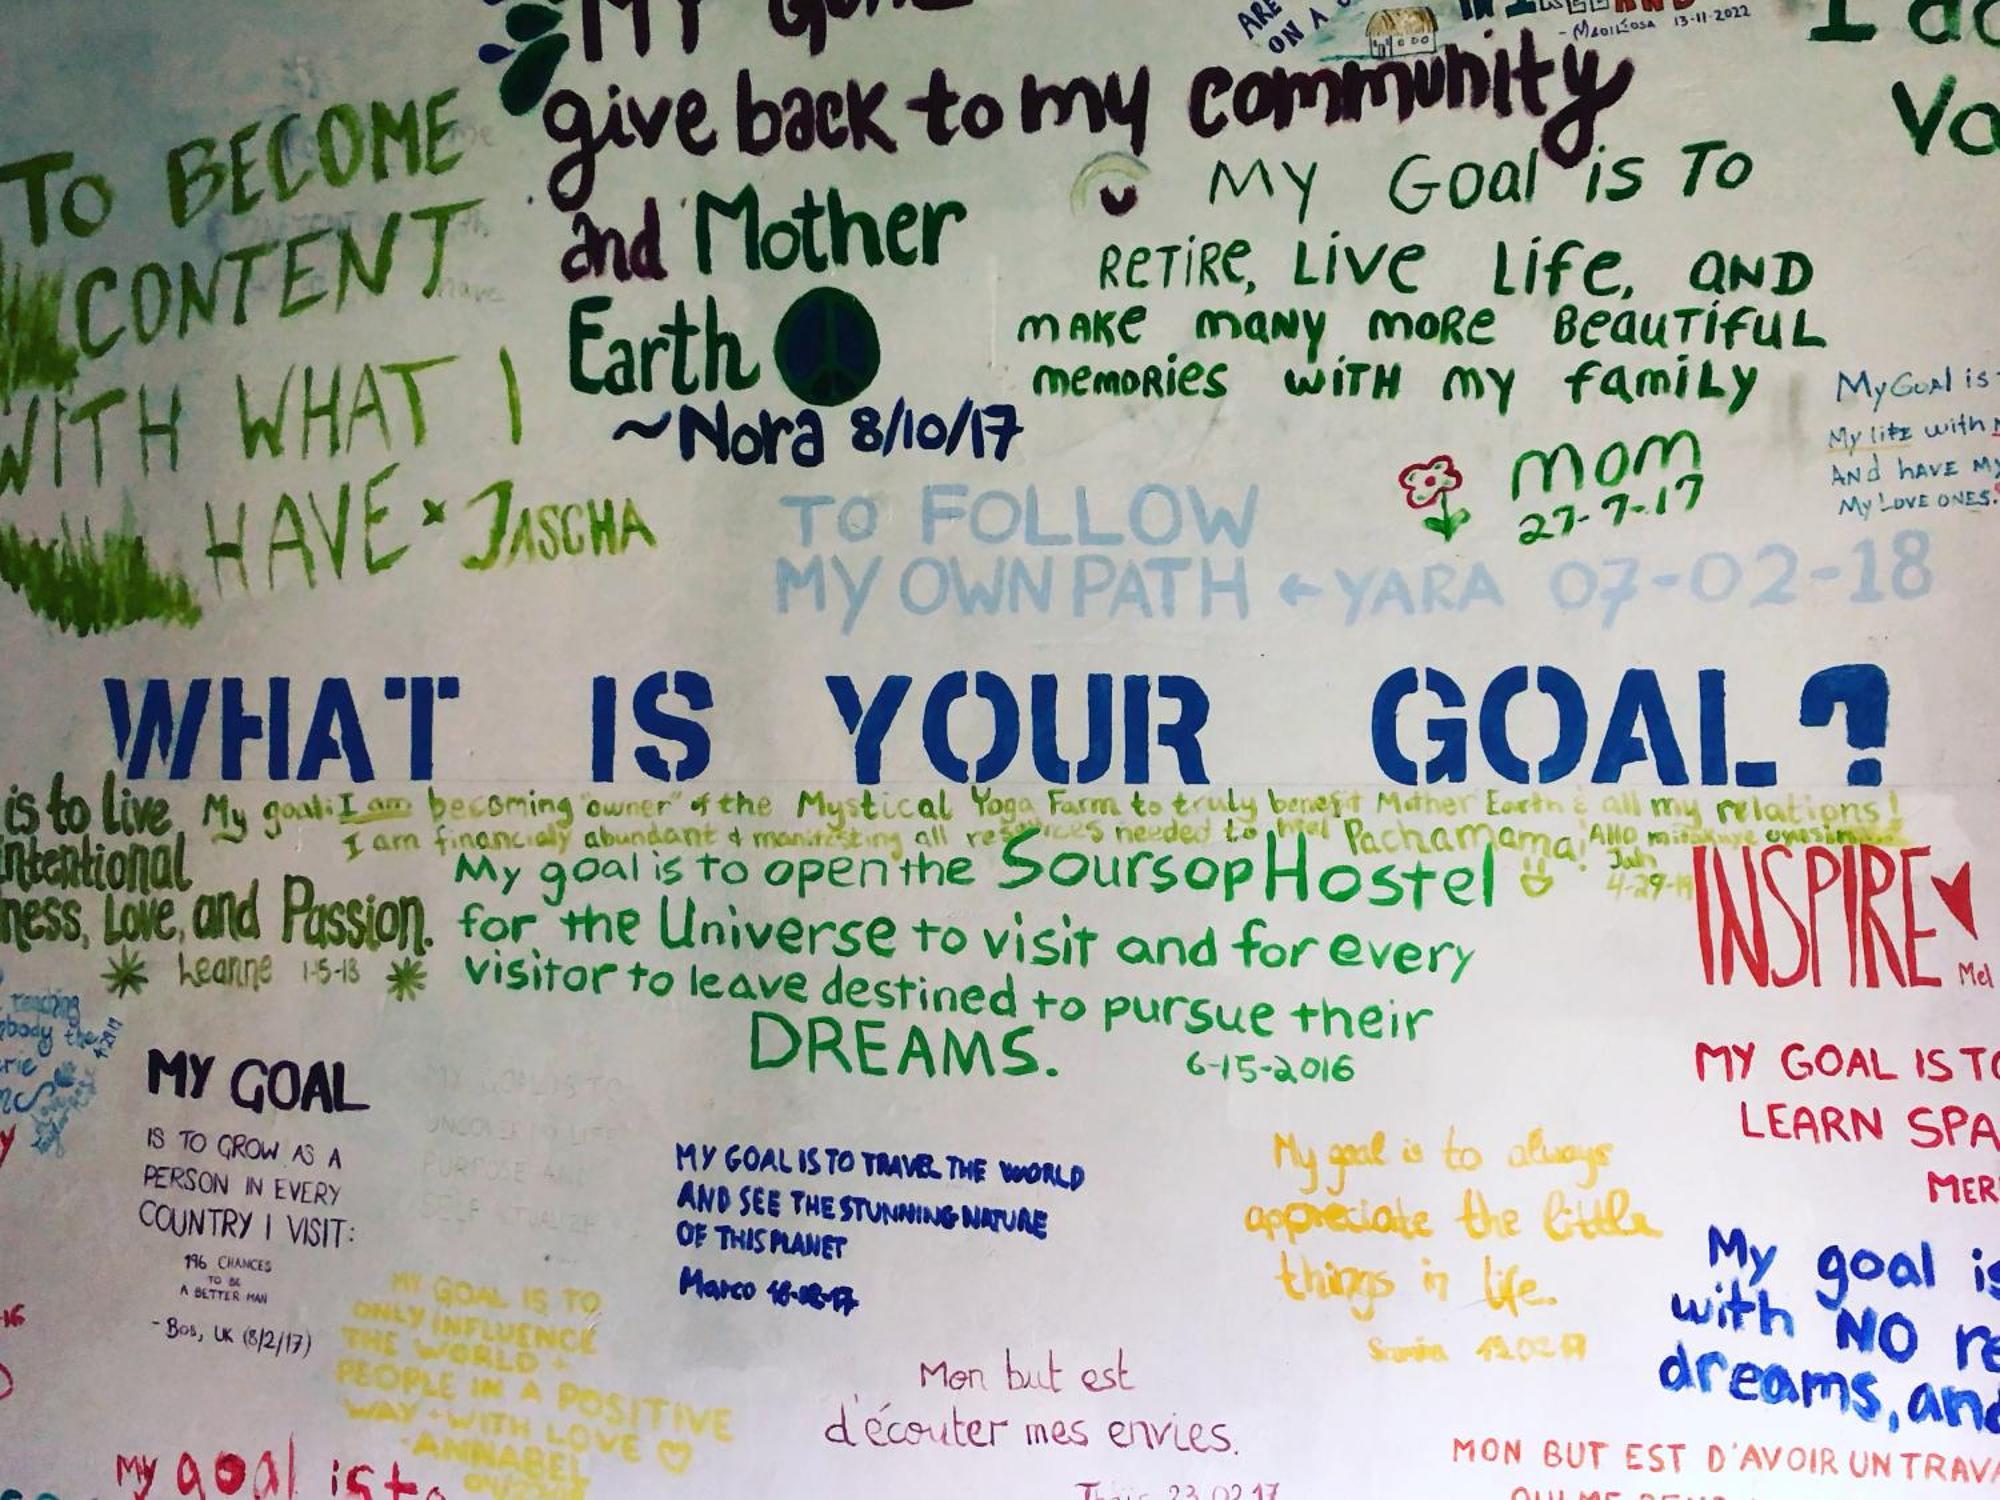 My
give back to my community
and Mother
Earth
~Nora 8/10/17
ARE
ON A
13-11-2022
I do
TO BECOME
CONTENT
WITH WHAT I
HAVE x JASCHA
My Goal is To
RETIRE, Live Life, AND
make many more Beautiful
memories with my family
mom
27-7-17
My Goal is
My life with
And have My
My Love ones.
TO FOLLOW
MY OWN PATH ← YARA 07-02-18
WHAT IS YOUR GOAL?
is to live
intentional
ness, Love, and Passion.
Leanne 1-5-18
My goal: I am becoming "owner" of the Mystical Yoga Farm to truly benefit Mother Earth & all my relations!
I am financially abundant & manifesting all resources needed to heal Pachamama!
My goal is to open the Soursop Hostel
for the Universe to visit and for every
visitor to leave destined to pursue their
DREAMS. 6-15-2016
INSPIRE
Mel
teaching
body the
MY GOAL
IS TO GROW AS A
PERSON IN EVERY
COUNTRY I VISIT:
196 CHANCES
TO BE
A BETTER MAN
- Bos, UK (8/2/17)
MY GOAL IS TO
PURPOSE AND
SELF
MY GOAL IS TO TRAVEL THE WORLD
AND SEE THE STUNNING NATURE
OF THIS PLANET
Marco
My goal is to always
appreciate the little
things in life.
MY GOAL IS TO
LEARN SPA
MER
My goal is
with NO re
dreams, and
MY GOAL IS TO
ONLY INFLUENCE
THE WORLD +
PEOPLE IN A POSITIVE
WAY - WITH LOVE ♡
-ANNABEL
Mon but est
d'écouter mes envies.
23.02.17
MON BUT EST D'AVOIR UN TRAVA
My goal is to